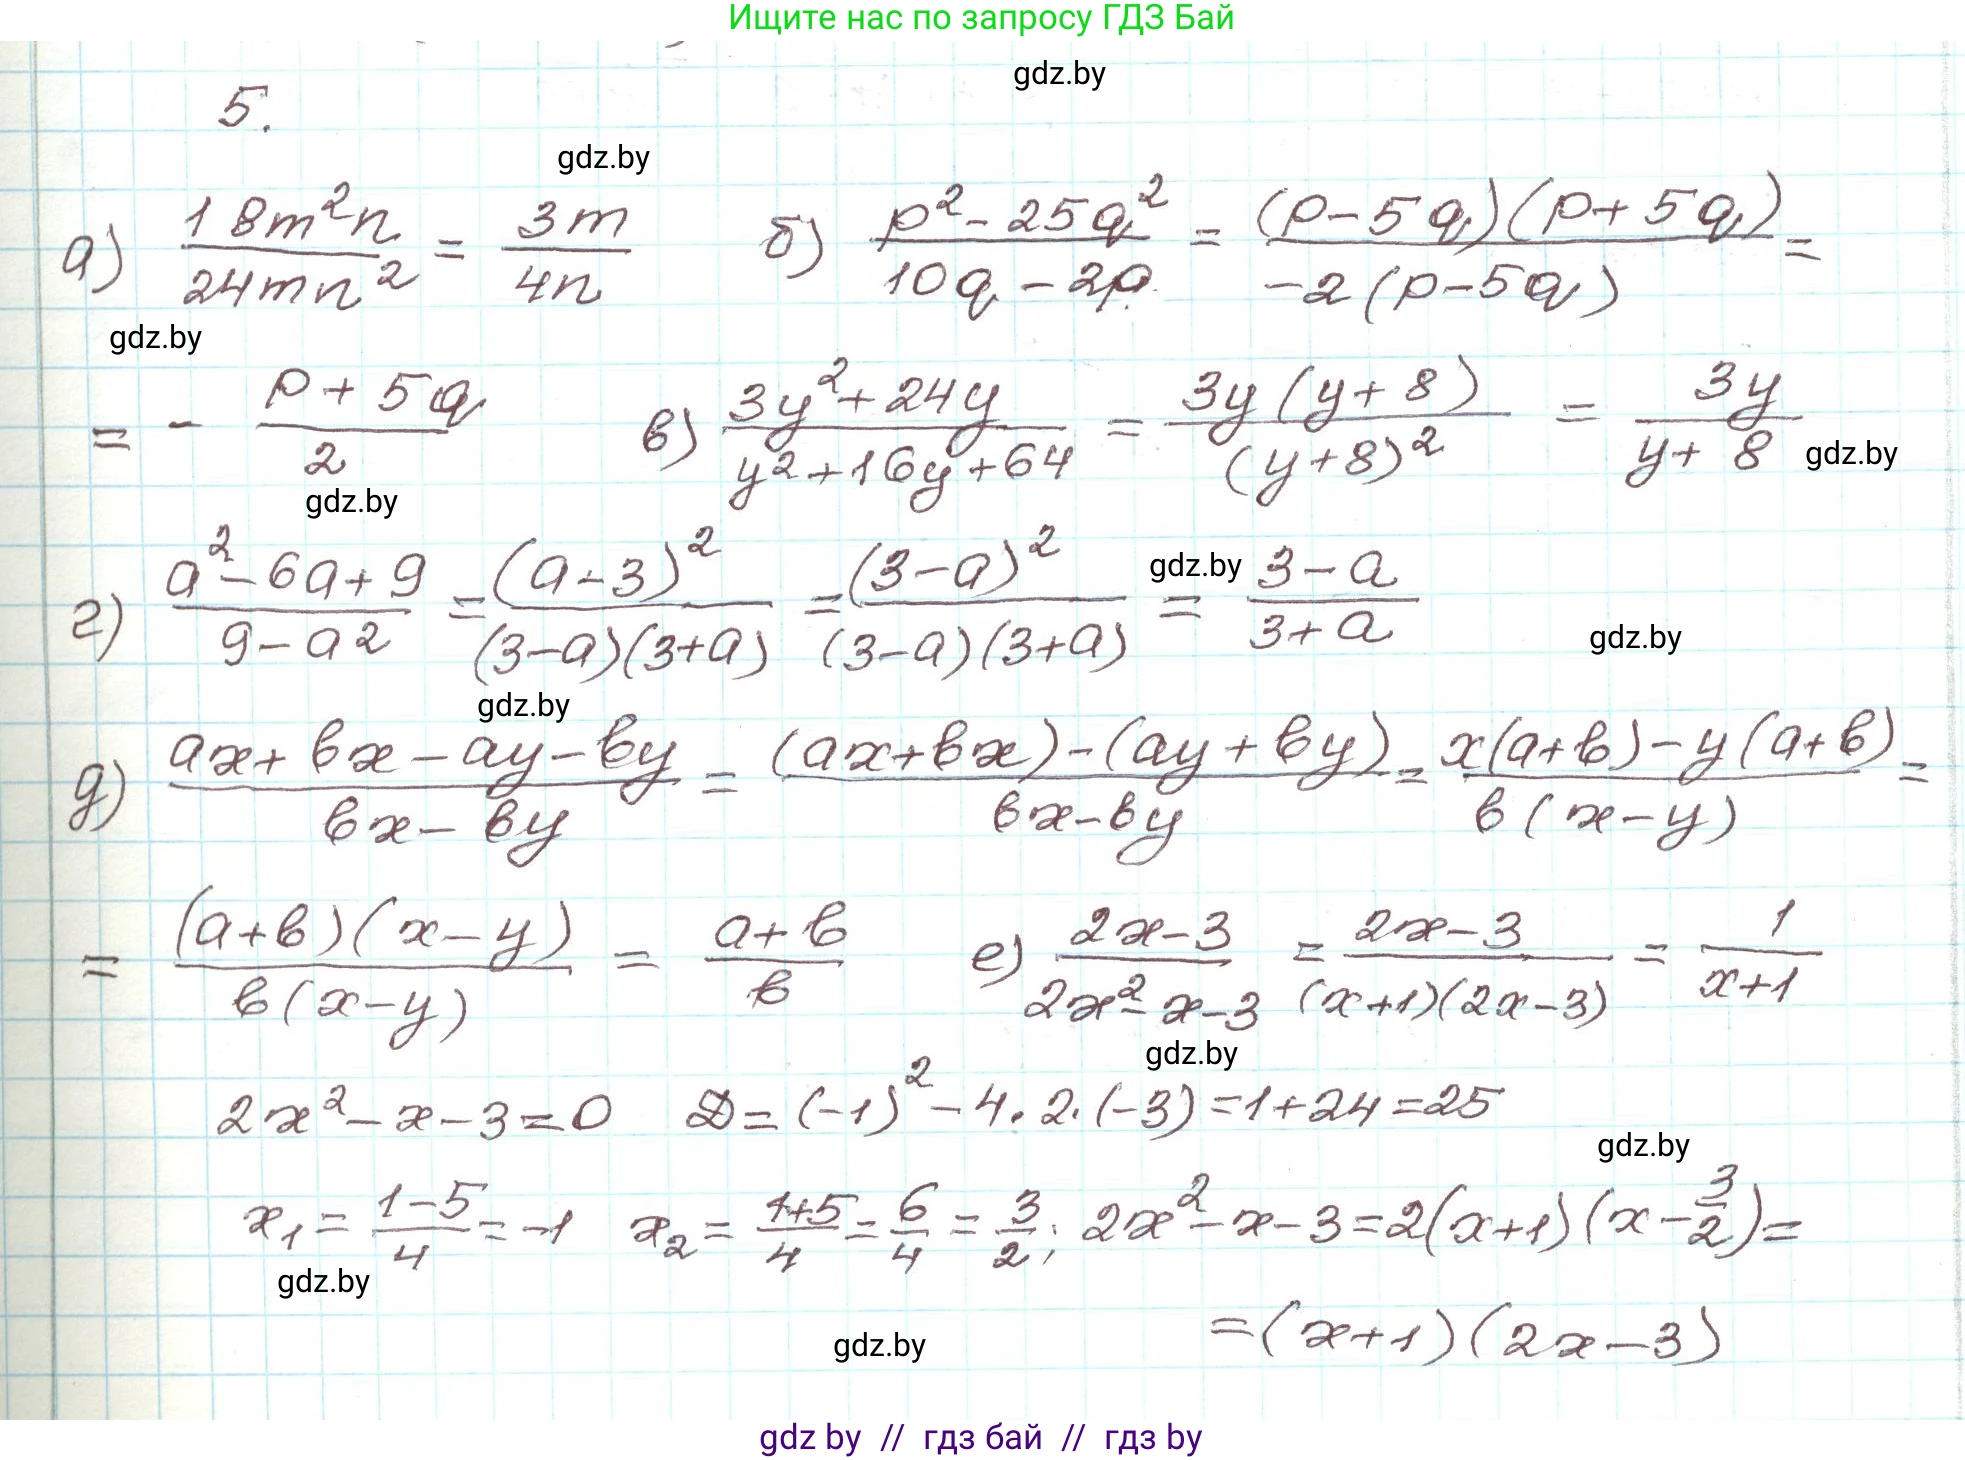 Ищите нас по запросу ГДЗ Бай
gdz.by
5.
gdz.by
а) \frac{18m^2n}{24mn^2} = \frac{3m}{4n} б) \frac{p^2-25q^2}{10q-2p} = \frac{(p-5q)(p+5q)}{-2(p-5q)} =
gdz.by
= - \frac{p+5q}{2} в) \frac{3y^2+24y}{y^2+16y+64} = \frac{3y(y+8)}{(y+8)^2} = \frac{3y}{y+8} gdz.by
gdz.by
г) \frac{a^2-6a+9}{9-a^2} = \frac{(a-3)^2}{(3-a)(3+a)} = \frac{(3-a)^2}{(3-a)(3+a)} = \frac{3-a}{3+a}
gdz.by
gdz.by
gdz.by
д) \frac{ax+bx-ay-by}{bx-by} = \frac{(ax+bx)-(ay+by)}{bx-by} = \frac{x(a+b)-y(a+b)}{b(x-y)} =
= \frac{(a+b)(x-y)}{b(x-y)} = \frac{a+b}{b} е) \frac{2x-3}{2x^2-x-3} = \frac{2x-3}{(x+1)(2x-3)} = \frac{1}{x+1}
gdz.by
2x^2-x-3=0 D=(-1)^2-4·2·(-3)=1+24=25
gdz.by
x_1 = \frac{1-5}{4} = -1 x_2 = \frac{1+5}{4} = \frac{6}{4} = \frac{3}{2}; 2x^2-x-3=2(x+1)(x-\frac{3}{2})=
gdz.by
=(x+1)(2x-3)
gdz.by
gdz by // гдз бай // гдз by